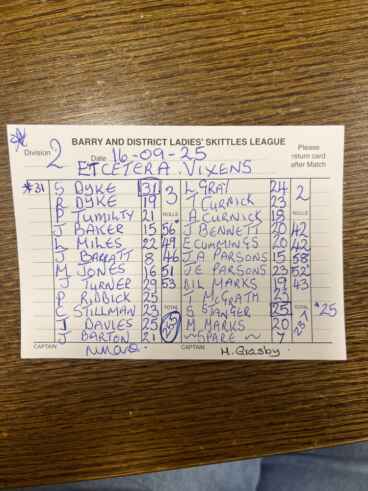 BARRY AND DISTRICT LADIES' SKITTLES LEAGUE
Division 2 Date 16-09-25 Please return card after Match
ETCETERA . VIXENS
*31 S DYKE 31 3 L GRAY 24 2
R DYKE 19 T CURNICK 23
P TUMILTY 21 ROLLS A CURNICK 18 ROLLS
J BAKER 15 56 J BENNETT 20 42
L MILES 22 49 E CUMMINGS 20 42
J BARRATT 8 46 J A PARSONS 15 58
M JONES 16 51 J E PARSONS 23 52
J TURNER 29 53 BIL MARKS 19 43
P RIDDICK 25 T McGRATH 23
C STILLMAN 23 TOTAL S SANGER 25 TOTAL *25
T DAVIES 25 255 M MARKS 20 237
J BARTON 21 ~SPARE~ 7
CAPTAIN CAPTAIN H. Grasby